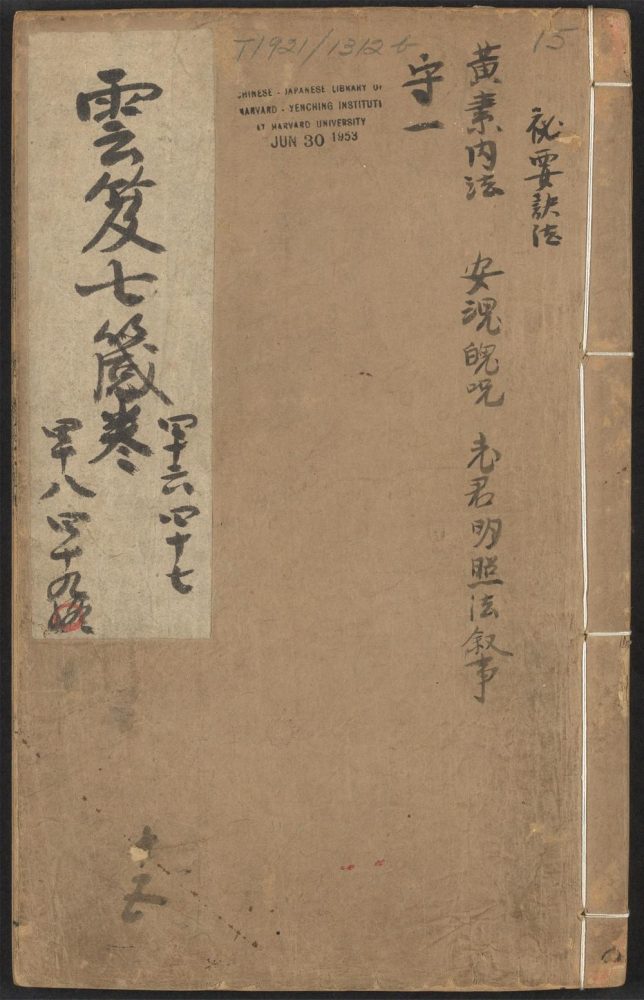 15
T1921/1312b
CHINESE - JAPANESE LIBRARY OF
HARVARD - YENCHING INSTITUTE
AT HARVARD UNIVERSITY
JUN 30 1953
祕要訣法
黃素内法 安魂魄咒 老君明照法叙事
守一
雲笈七籤卷
四十六 四十七
四十八 四十九
十五